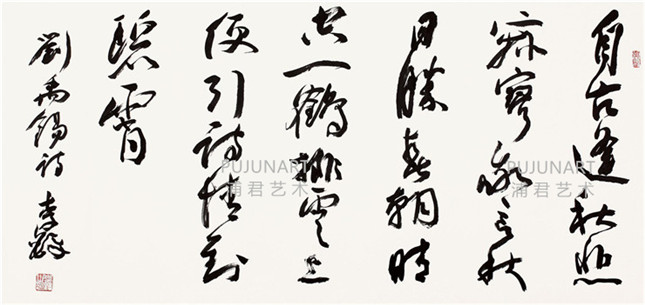 自古逢秋悲
寂寥我言秋
日勝春朝晴
空一鶴排雲上
便引詩情到
碧霄
劉禹錫詩 李
PUJUNART
浦君艺术
PUJUNART
浦君艺术